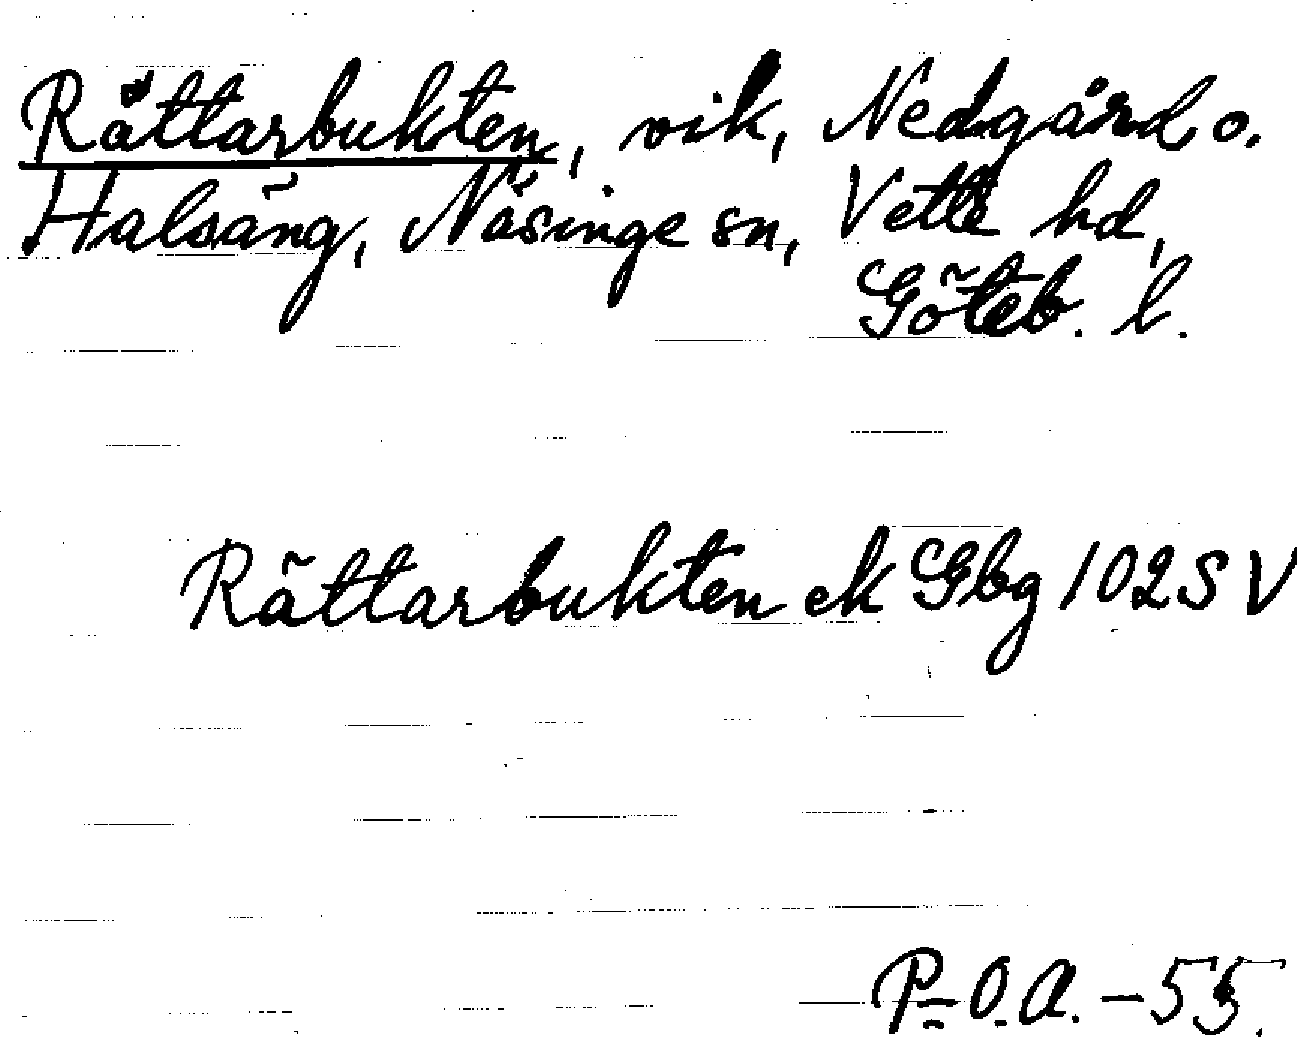 Rättarbukten, vik, Nedgård o.
Halsäng, Näsinge sn, Vette hd,
Göteb. l.
Rättarbukten ek Gbg 102 SV
P-O.A. -55.